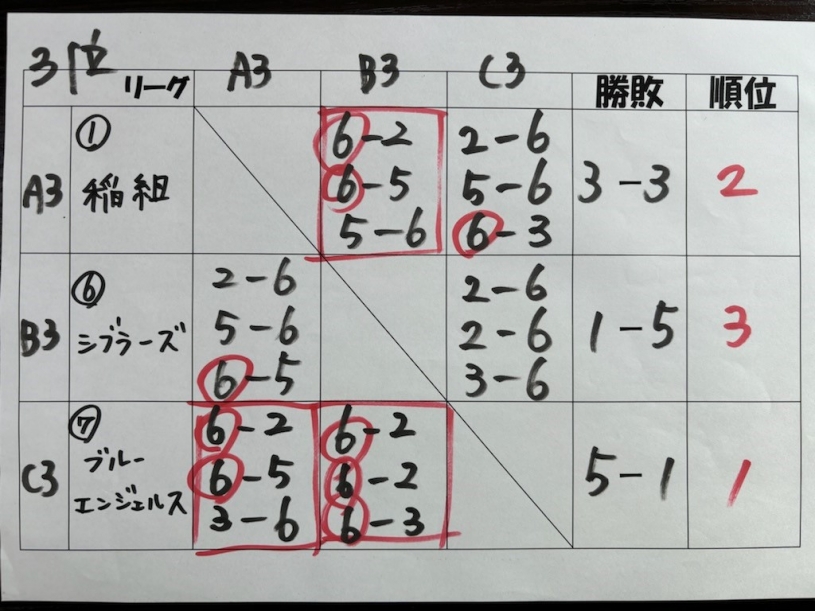 3位 リーグ A3 B3 C3 勝敗 順位
A3 ① 稲組 6-2 2-6 3-3 2
6-5 5-6
5-6 6-3
B3 ⑥ シブラーズ 2-6 2-6 1-5 3
5-6 2-6
6-5 3-6
C3 ⑦ ブルー 6-2 6-2 5-1 1
エンジェルス 6-5 6-2
3-6 6-3